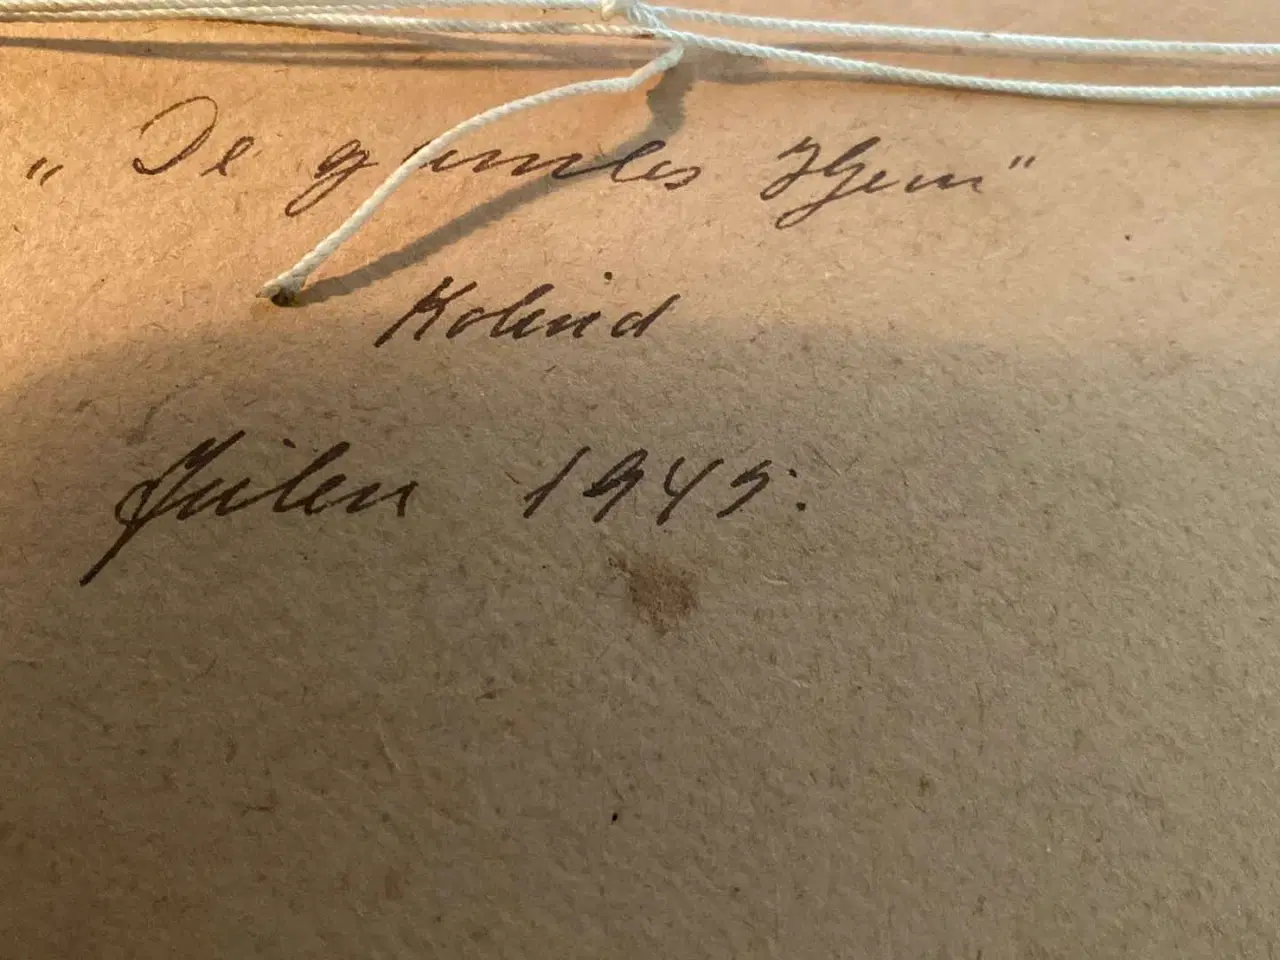 „De gamles Hjem"
Kolind
Julen 1945.